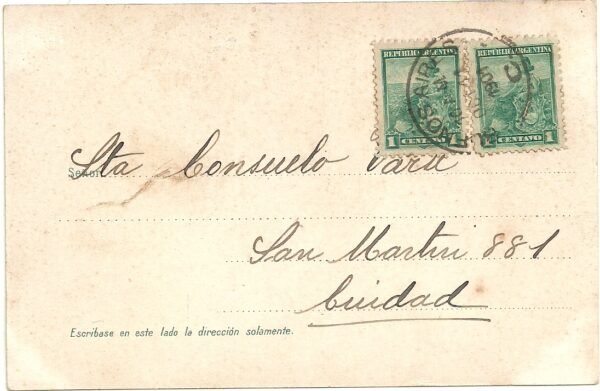 REPUBLICA ARGENTINA
REPUBLICA ARGENTINA
1 CENTAVO 1
CENTAVO 1
Señor
Sta Consuelo
San Martin 881
Cuidad
Escríbase en este lado la dirección solamente.